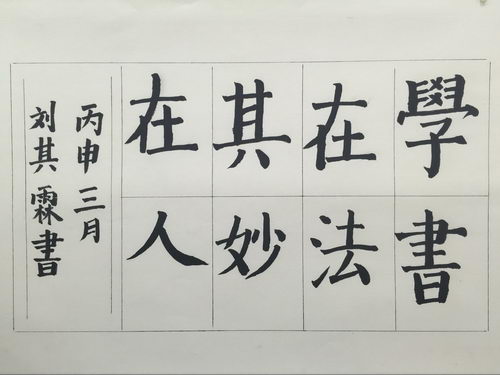 學書
在法
其妙
在人
丙申三月
刘其霖書